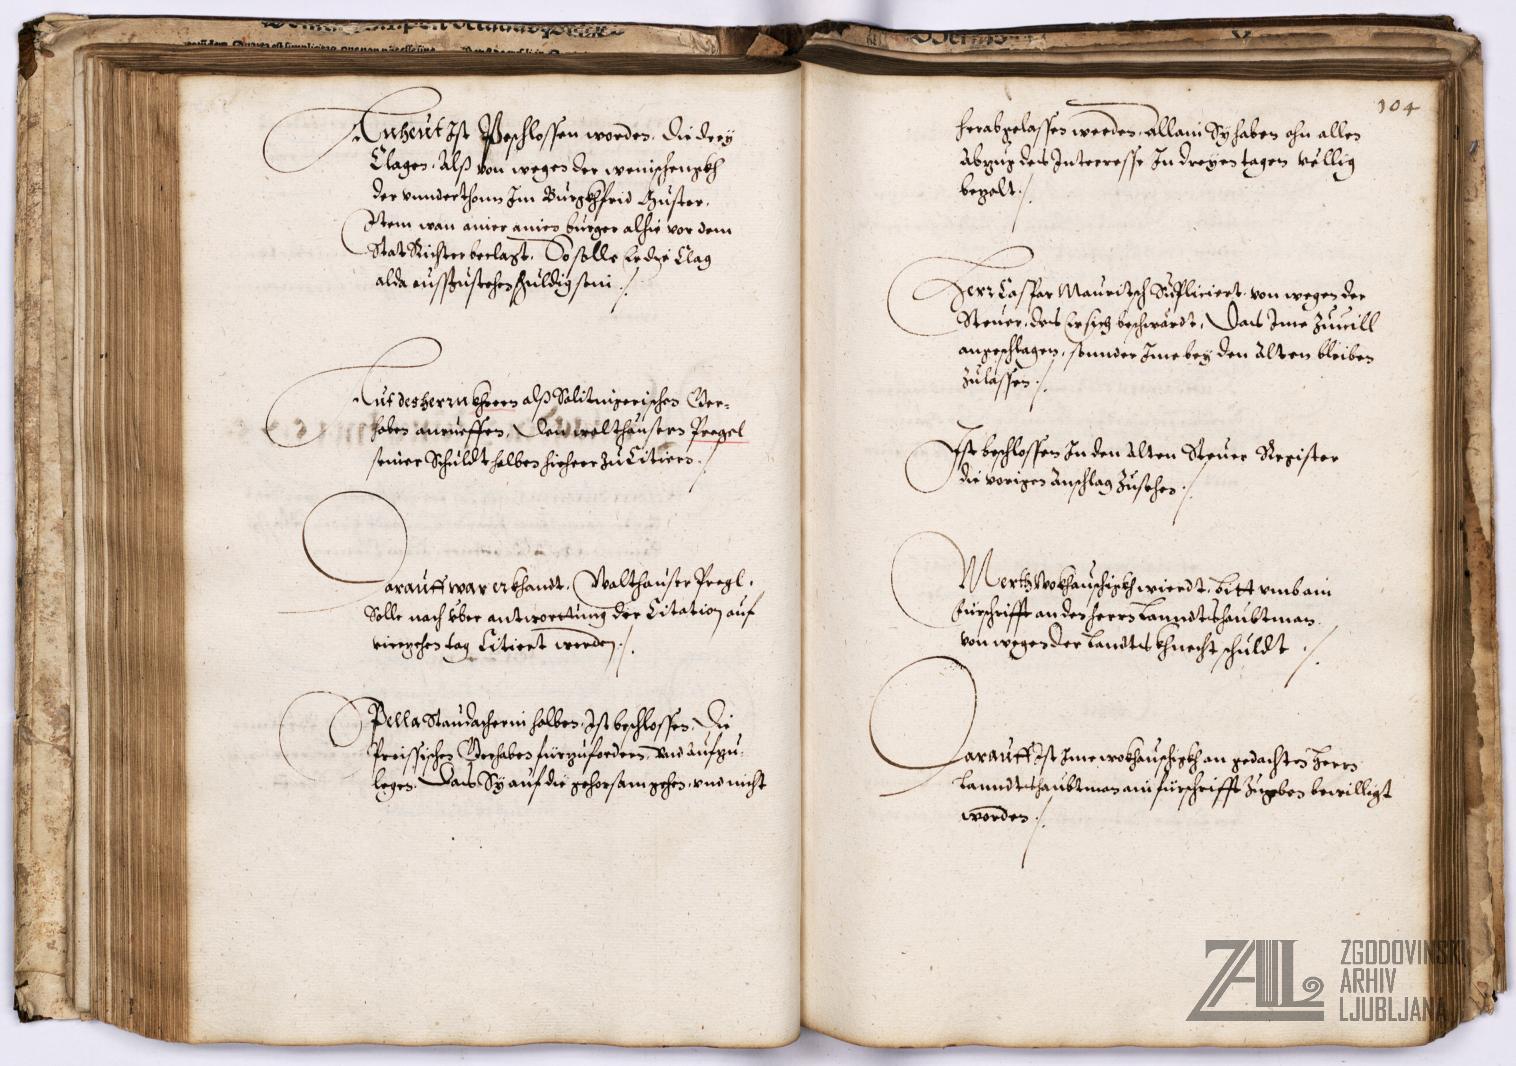 Anheut Ist Beschlossen worden. die drey
Clagen. Alß von wegen der
der vnnderthonn Im Burgkhfrid
Item wan ainer ainen burger alhie vor dem
Stat Richter beclagt. So solle Er dye Clag
alda ausszustehen schuldig sein ./.
Auf des herrn khren alß Salitingerischen Ger-
haben anrueffen. Den walthausern Pregel
seiner Schuldt halben hieheer zu Citiern ./.
Darauff war erkhandt. Walthauser Pregl.
Solle nach vber antworttung der Citation auf
virzehen tag Citiert werden ./.
Pella Staudacherin halben. Ist beschlossen. die
Preissischen Gerhaben fürzufordern vnd aufzu-
legen. Das Sy auf die gehorsam gehen. vnd nicht
104
herabgelassen werden. Allain Sy haben ohn alles
Abzug des Interesse In dreyen tagen völlig
bezalt ./.
Herr Caspar Mauritsch Suppliciert. von wegen der
Steuer. des Er sich beschwärdt. Das Ime Zuuill
angeschlagen. sonnder Ime bey den Alten bleiben
zulassen ./.
Ist beschlossen In den Alten Steuer Register
die vorigen Anschlag zusehen ./.
Mertt Wokhauschigkh wierdt. Bitt vmb ain
fürschrifft an den herrn Lanndtshaubtman.
von wegen der Landts khnecht schuldt ./.
Darauff Ist Ime wokhauschigkh an gedachten Herrn
Lanndtshaubtman ain fürschrifft zugeben bewilligt
worden ./.
ZAL
ZGODOVINSKI
ARHIV
LJUBLJANA